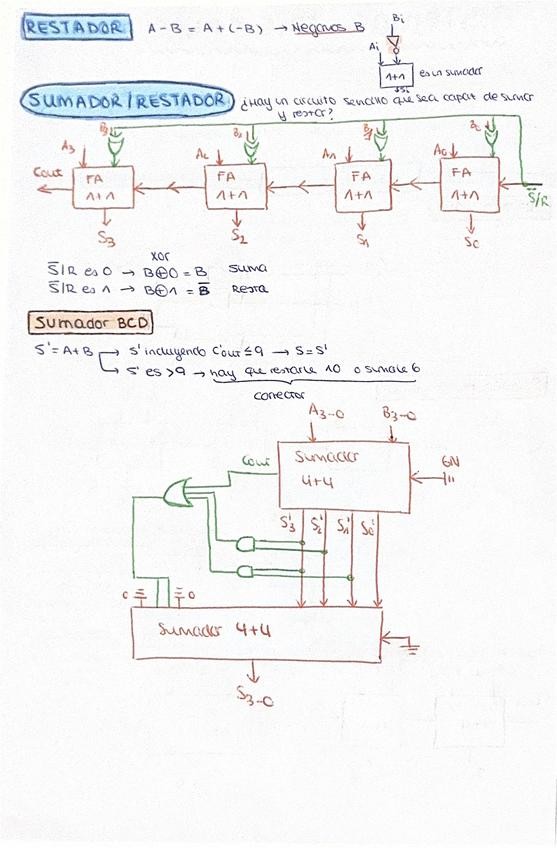 RESTADOR A-B = A+(-B) → Negamos B
Bi
Ai
1+1 es un sumador
Si
SUMADOR/RESTADOR ¿Hay un circuito sencillo que sea capaz de sumar
y restar?
B3 B2 B1 B0
A3 A2 A1 A0
Cout FA FA FA FA
1+1 1+1 1+1 1+1
S̅/R
S3 S2 S1 S0
xor
S̅/R es 0 → B⊕0 = B suma
S̅/R es 1 → B⊕1 = B̅ Resta
Sumador BCD
S' = A+B → S' incluyendo C'out ≤ 9 → S=S'
→ S' es >9 → hay que restarle 10 o sumarle 6
corrector
A3-0 B3-0
Cout Sumador
4+4
S'3 S'2 S'1 S'0
0 0
Sumador 4+4
S3-0